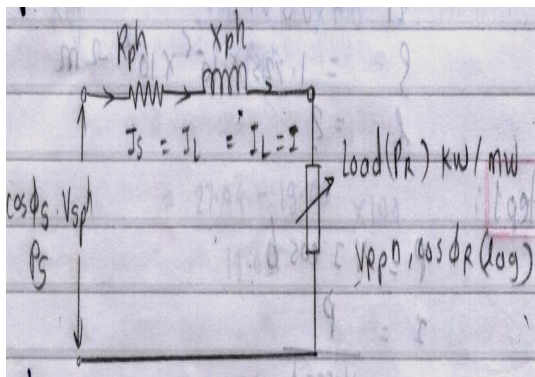 Rph Xph
Is = IL = IL = I
Load (PR) KW/MW
cosϕs, Vsph
Ps
VRph, cosϕR (lag)